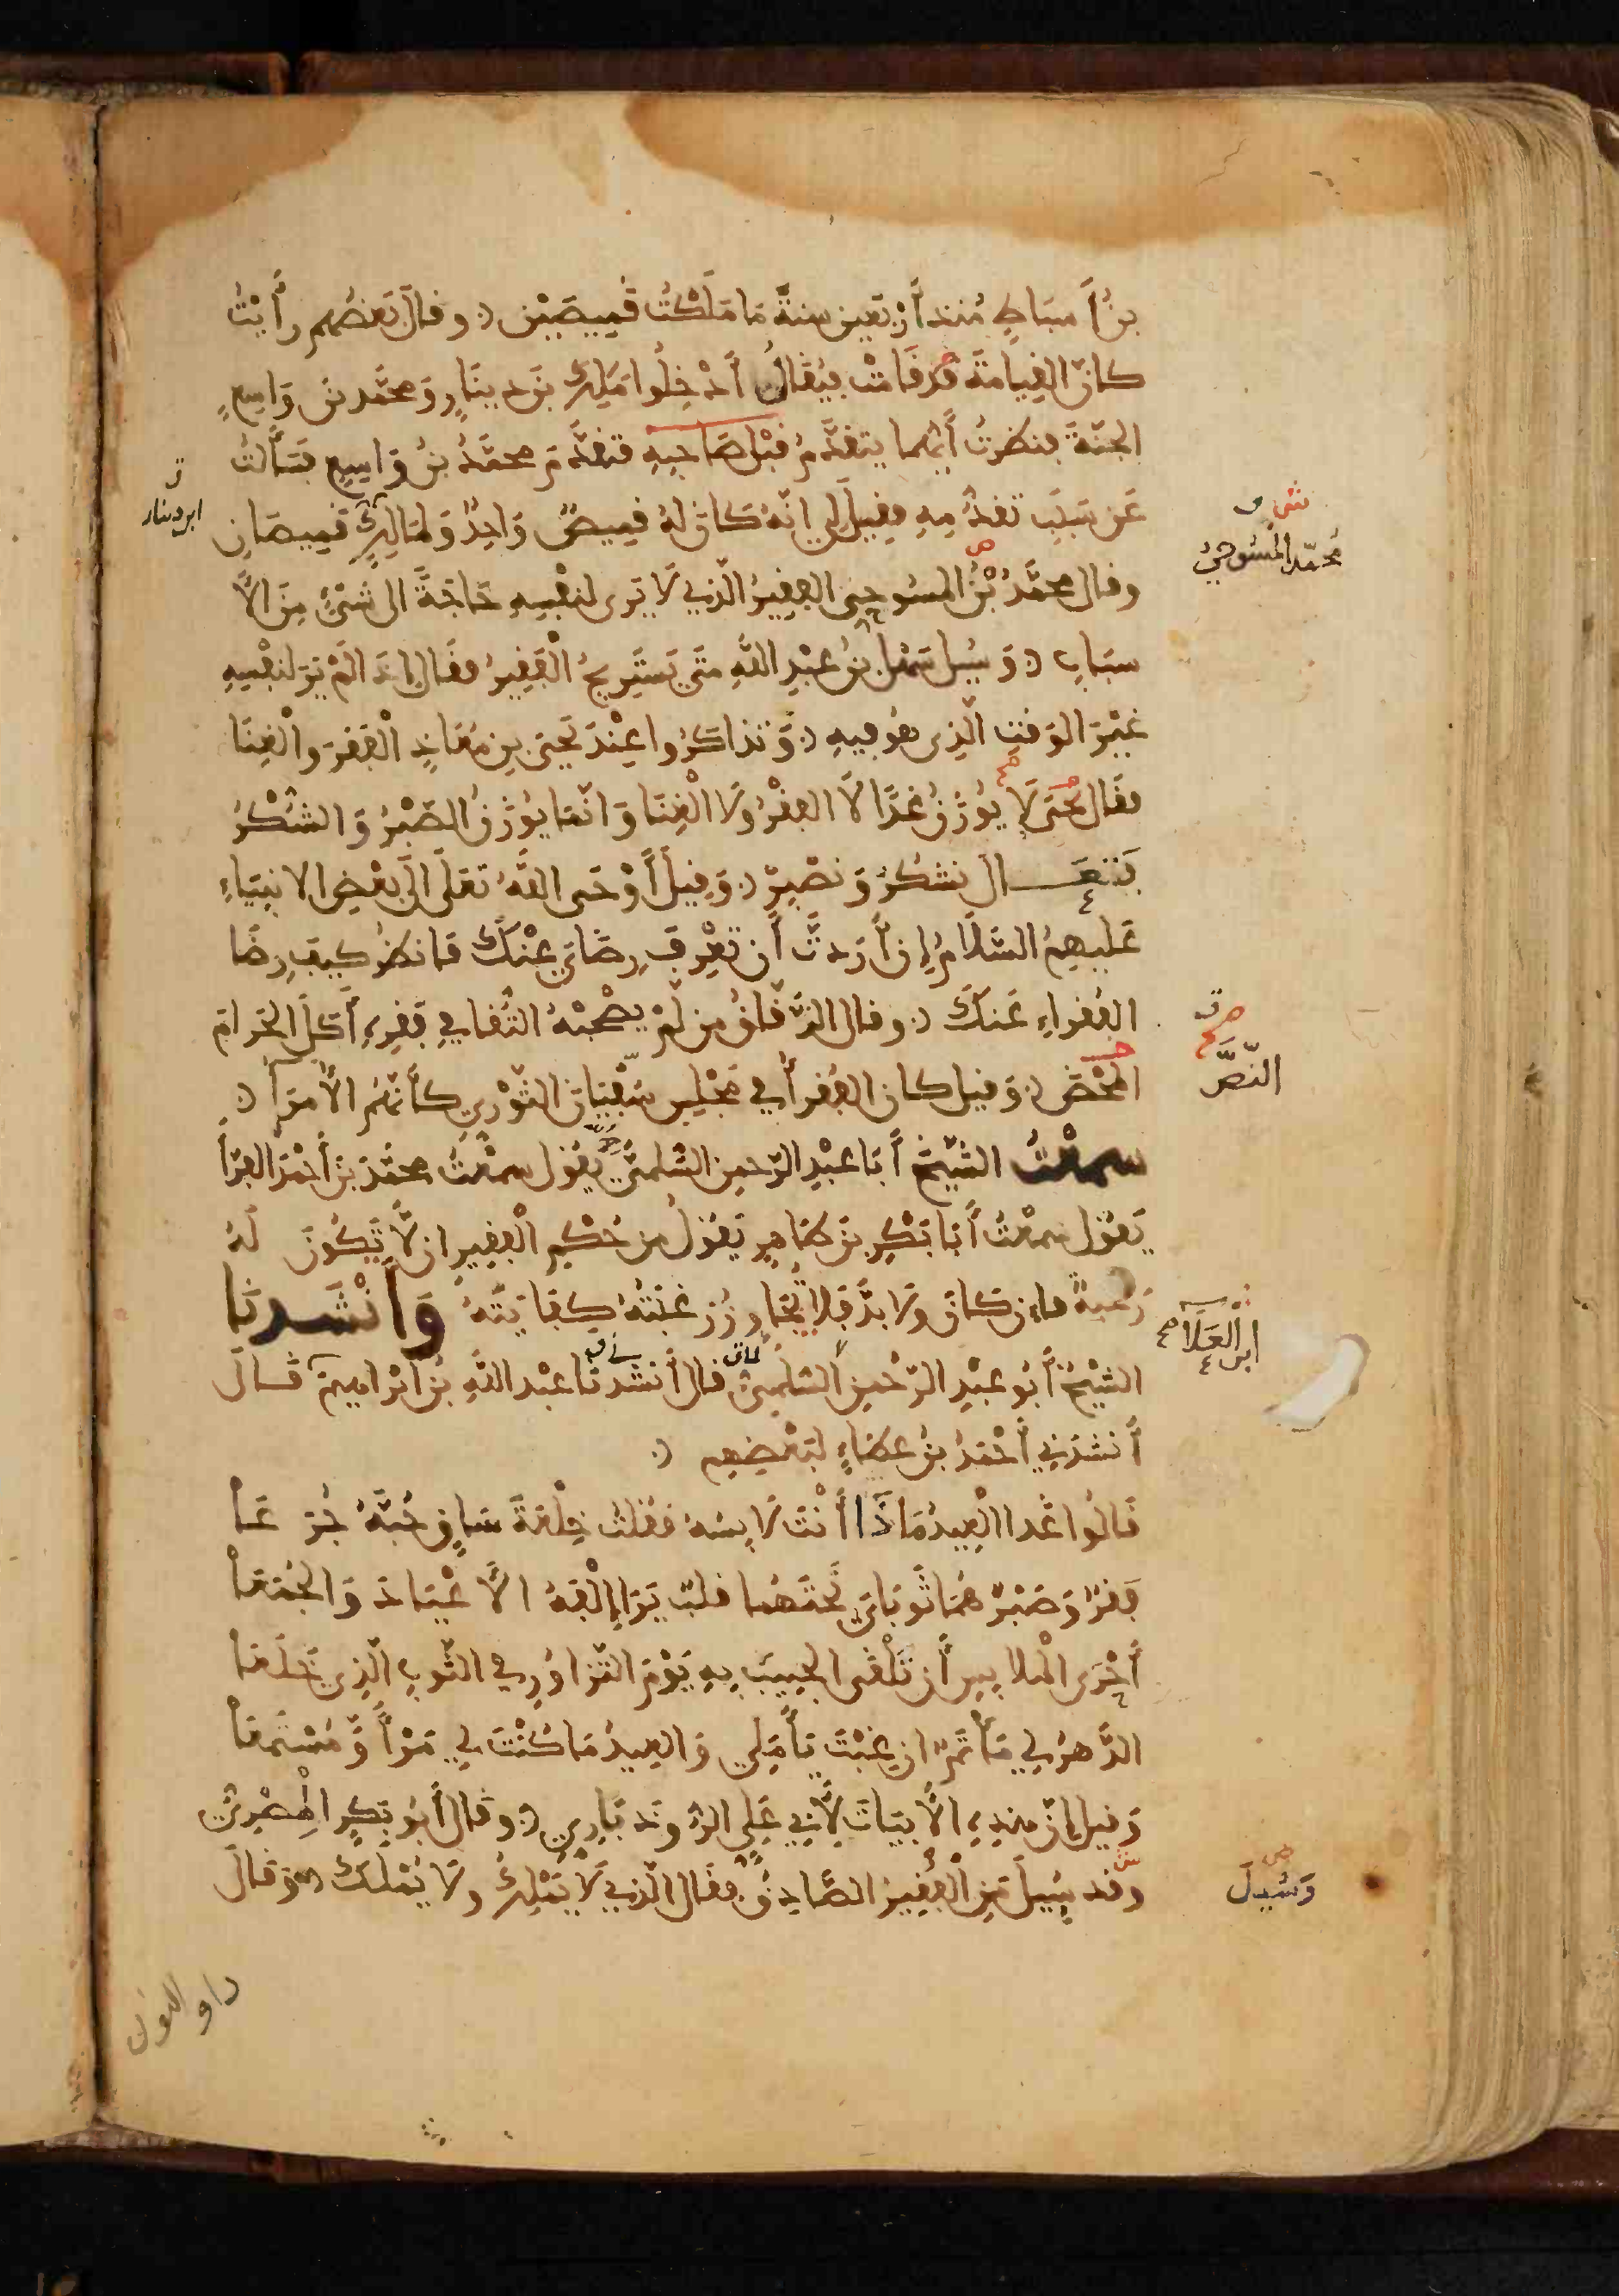 بنُ أَسبَاطٍ مُنذ أَرْبَعِين سنةً مَا مَلَكْتُ قَمِيصَيْن وقالَ بَعْضُهم رأَيْتُ
كانّ القِيامَةَ قَد قَامَتْ فيُقَالُ أَدْخِلُوا مَلِكَ بنَ دِينَارٍ وَمحمَّد بنَ وَاسِعٍ
الجنّةَ فنظرتُ أَيُّهما يتقدَّمُ قَبْلَ صَاحِبِهِ فتقدَّمَ محمَّدُ بنُ وَاسِعٍ فسَأَلتُ
عَن سَبَبِ تقدُّمِهِ فقِيلَ لِي اِنّهُ كَانَ لهُ قميصٌ وَاحِدٌ وَلمَالِكٍ قَمِيصَانِ
ابن دينار
وقال محمَّدُ بْنُ المسُوحِيّ الفقِيرُ الّذِي لَا يَرى لنفْسِهِ حَاجَةً الى شَيْءٍ مِنَ الأَ
محمّد المسُوحِيُّ
سبَابِ وَسُيِلَ سَهْلُ بنُ عَبْدِ اللّهِ متَى يَسْتَرِيحُ الْفَقِيرُ فقَال اِذَا لَمْ يَرَ لنفْسِهِ
غيْرَ الوَقتِ الّذِى هُو فِيهِ وَتذاكَرُوا عِنْدَ يَحيَى بنِ مُعَاذٍ الْفَقْرَ والْغِنَا
فقَال يَحْيَى لَا يُوزَنُ غدًا لَا الفَقْرُ ولَا الْغِنَا وَانّمَا يُوزَنُ الصّبْرُ وَالشُّكْرُ
فَتَعَـال نشكُرْ وَنصْبِرْ وَقِيلَ أَوْحَى اللّهُ تعَلَى الَى بَعْضِ الانبِيَاءِ
عَليهِمُ السَّلَامُ اِن أَرَدتَّ أَن تعْرِفَ رِضَايَ عنْكَ فانظُر كيفَ رِضَا
الفُقَراءِ عَنكَ وقال الزّقّاقُ من لَمْ يصْحَبْهُ التُّقَا فِي فَقرِهِ أَكَلَ الحَرامَ
المحْضَ وَقيل كان الفُقَراُ فِي مَجْلِسِ سُفْيَانَ الثَّوْرِي كأَنّهُمُ الاُمَرَاُ
النَّصَّ
سمعْتُ الشّيْخَ أَبَا عَبْدِ الرّحمنِ السُّلَمِيَّ يَقُول سمعْتُ محمَّدَ بنَ أَحْمَدَ الفرّاَ
يَقُول سمعْتُ أَبَا بَكْرِ بنَ طَاهِرٍ يَقُولُ مِن حُكْمِ الْفَقِيرِ ان لَا تَكُونَ لَهُ
رَغبةٌ فاِن كَانَ ولَا بدَّ فَلا تجَاوِزُ رَغبَتُهُ كِفَايَتَهُ وَأَنْشَـدنَا
ابن العَلَا
الشّيْخُ أَبُو عبْدِ الرّحْمَنِ السُّلَمِيُّ قال أَنشَدنَا عبْد اللّهِ بنُ ابْراهِيمَ قَـالَ
أَنشدَنِي أَحْمَدُ بنُ عَطَاءٍ لبَعْضِهِم
قَالُوا غَدا الْعِيدُ مَاذَا أَنْتَ لَابِسُهُ فقُلتُ خِلْعَةَ سَاقٍ حُبَّهُ جُرَعَا
فَقْرٌ وَصَبْرٌ هُمَا ثَوبَايَ تَحتَهُما قلبٌ يَرَا اِلْفَهُ الاَعْيَادَ وَالجُمَعَا
أَحْرَى الْملَابِسِ أَن تَلْقَى الحبِيبَ بِهِ يَوْمَ التّزاوُرِ فِي الثّوبِ الّذِي خَلَعَا
الدّهرُ لِي مَأْتَمٌ ان غِبْتَ يَا أَمَلِي وَالعِيدُ مَا كُنْتَ لِي مَرْأً وَّمُسْتَمَعَا
وَقيل اِنّ هذِهِ الاَبيَاتَ لِأَبِي عَلِي الرُّوذَبَارِي وقَال أَبُو بَكرٍ المِصْرِيُّ
وقد سُيِلَ مَنِ الْفَقِيرُ الصَّادِقُ فقَال الّذِي لَا يَمْلِكُ ولَا يُمْلَكُ وَقَالَ
وَسُيِلَ